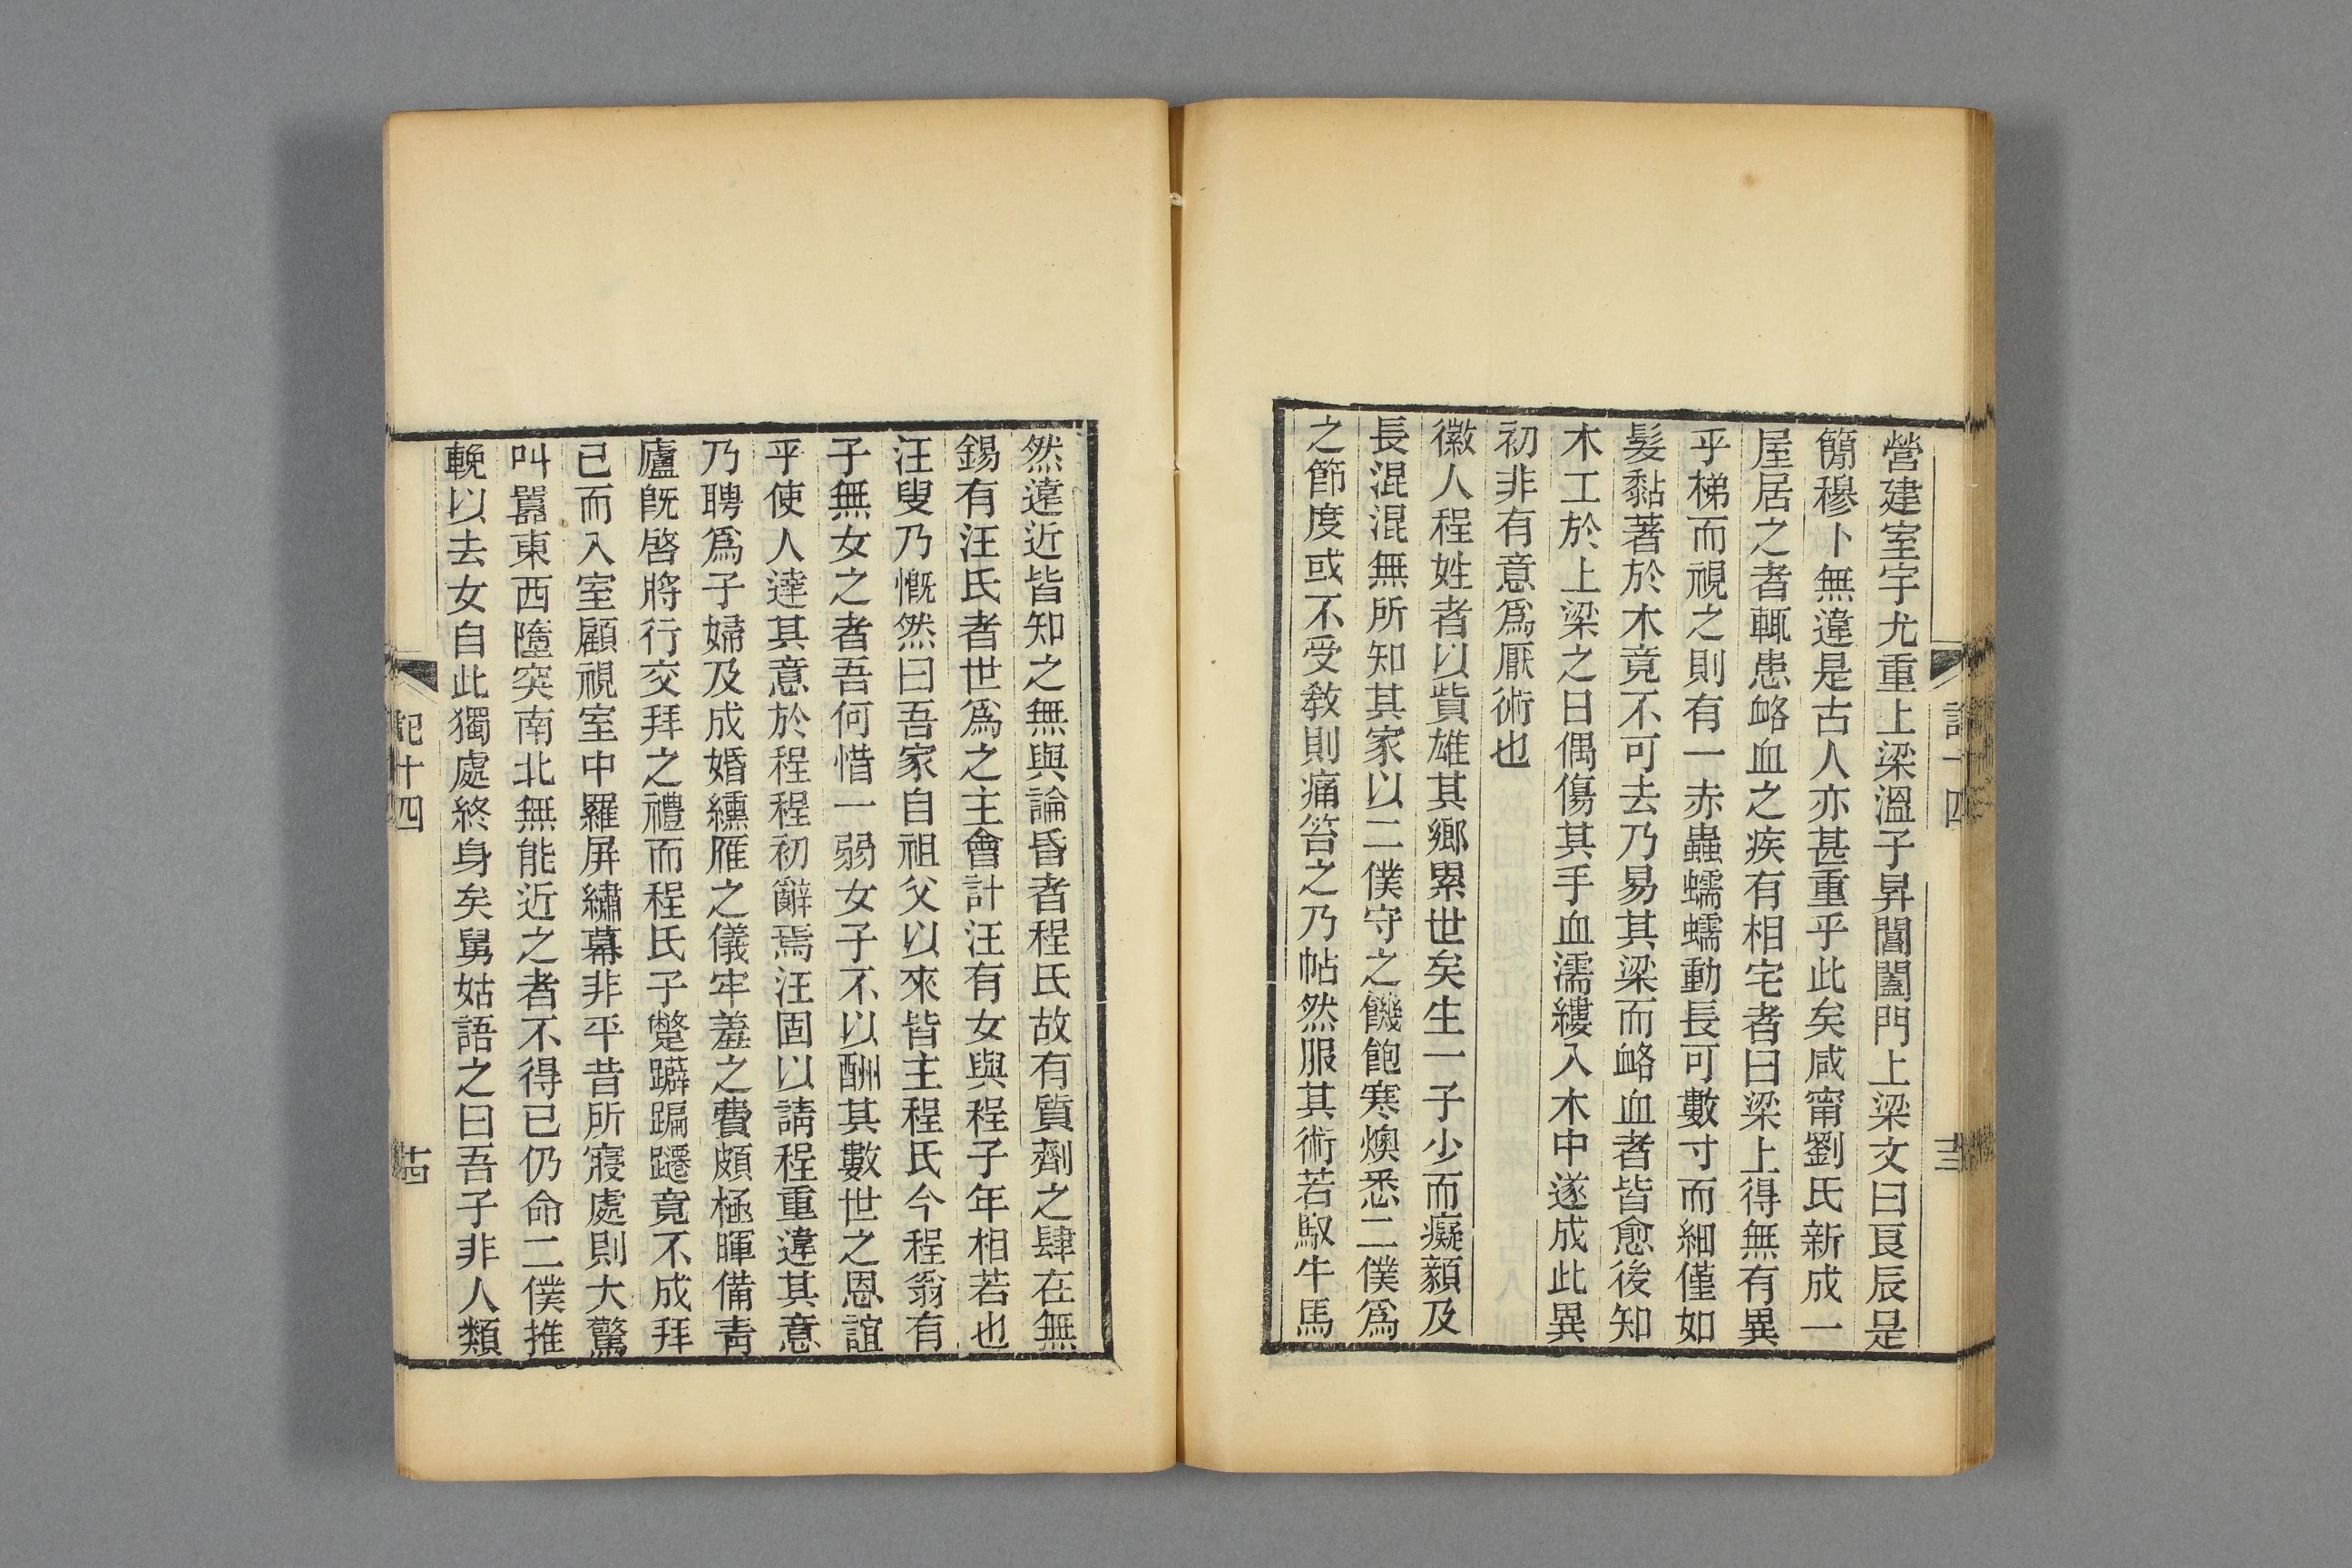 營建室宇尤重上梁溫子昇閶闔門上梁文曰良辰是
簡穆卜無違是古人亦甚重乎此矣咸甯劉氏新成一
屋居之者輒患衂血之疾有相宅者曰梁上得無有異
乎梯而視之則有一赤蟲蠕蠕動長可數寸而細僅如
髮黏著於木竟不可去乃易其梁而衂血者皆愈後知
木工於上梁之日偶傷其手血濡縷入木中遂成此異
初非有意爲厭術也
徽人程姓者以貲雄其鄉累世矣生一子少而癡纇及
長混混無所知其家以二僕守之饑飽寒燠悉二僕爲
之節度或不受敎則痛笞之乃帖然服其術若馭牛馬
然遠近皆知之無與論昏者程氏故有質劑之肆在無
錫有汪氏者世爲之主會計汪有女與程子年相若也
汪叟乃慨然曰吾家自祖父以來皆主程氏今程翁有
子無女之者吾何惜一弱女子不以酬其數世之恩誼
乎使人達其意於程程初辭焉汪固以請程重違其意
乃聘爲子婦及成婚纁雁之儀牢羞之費頗極暉備靑
廬旣啓將行交拜之禮而程氏子蹩躃蹁躚竟不成拜
已而入室顧視室中羅屏繡幕非平昔所寢處則大驚
叫嚣東西墮突南北無能近之者不得已仍命二僕推
輓以去女自此獨處終身矣舅姑語之曰吾子非人類
記十四
十四